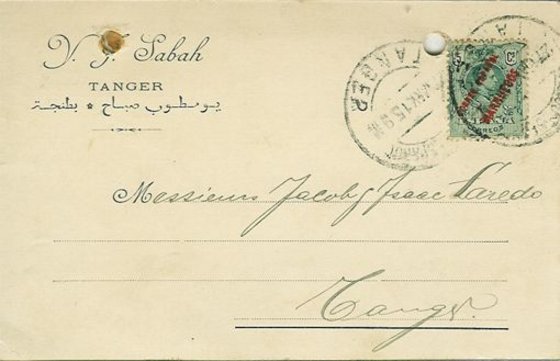 Y. T. Sabah
TANGER
يوسطوب صباح * بطنجة
TANGER
CORREOS
Messieurs Jacob & Isaac Laredo
Tanger.